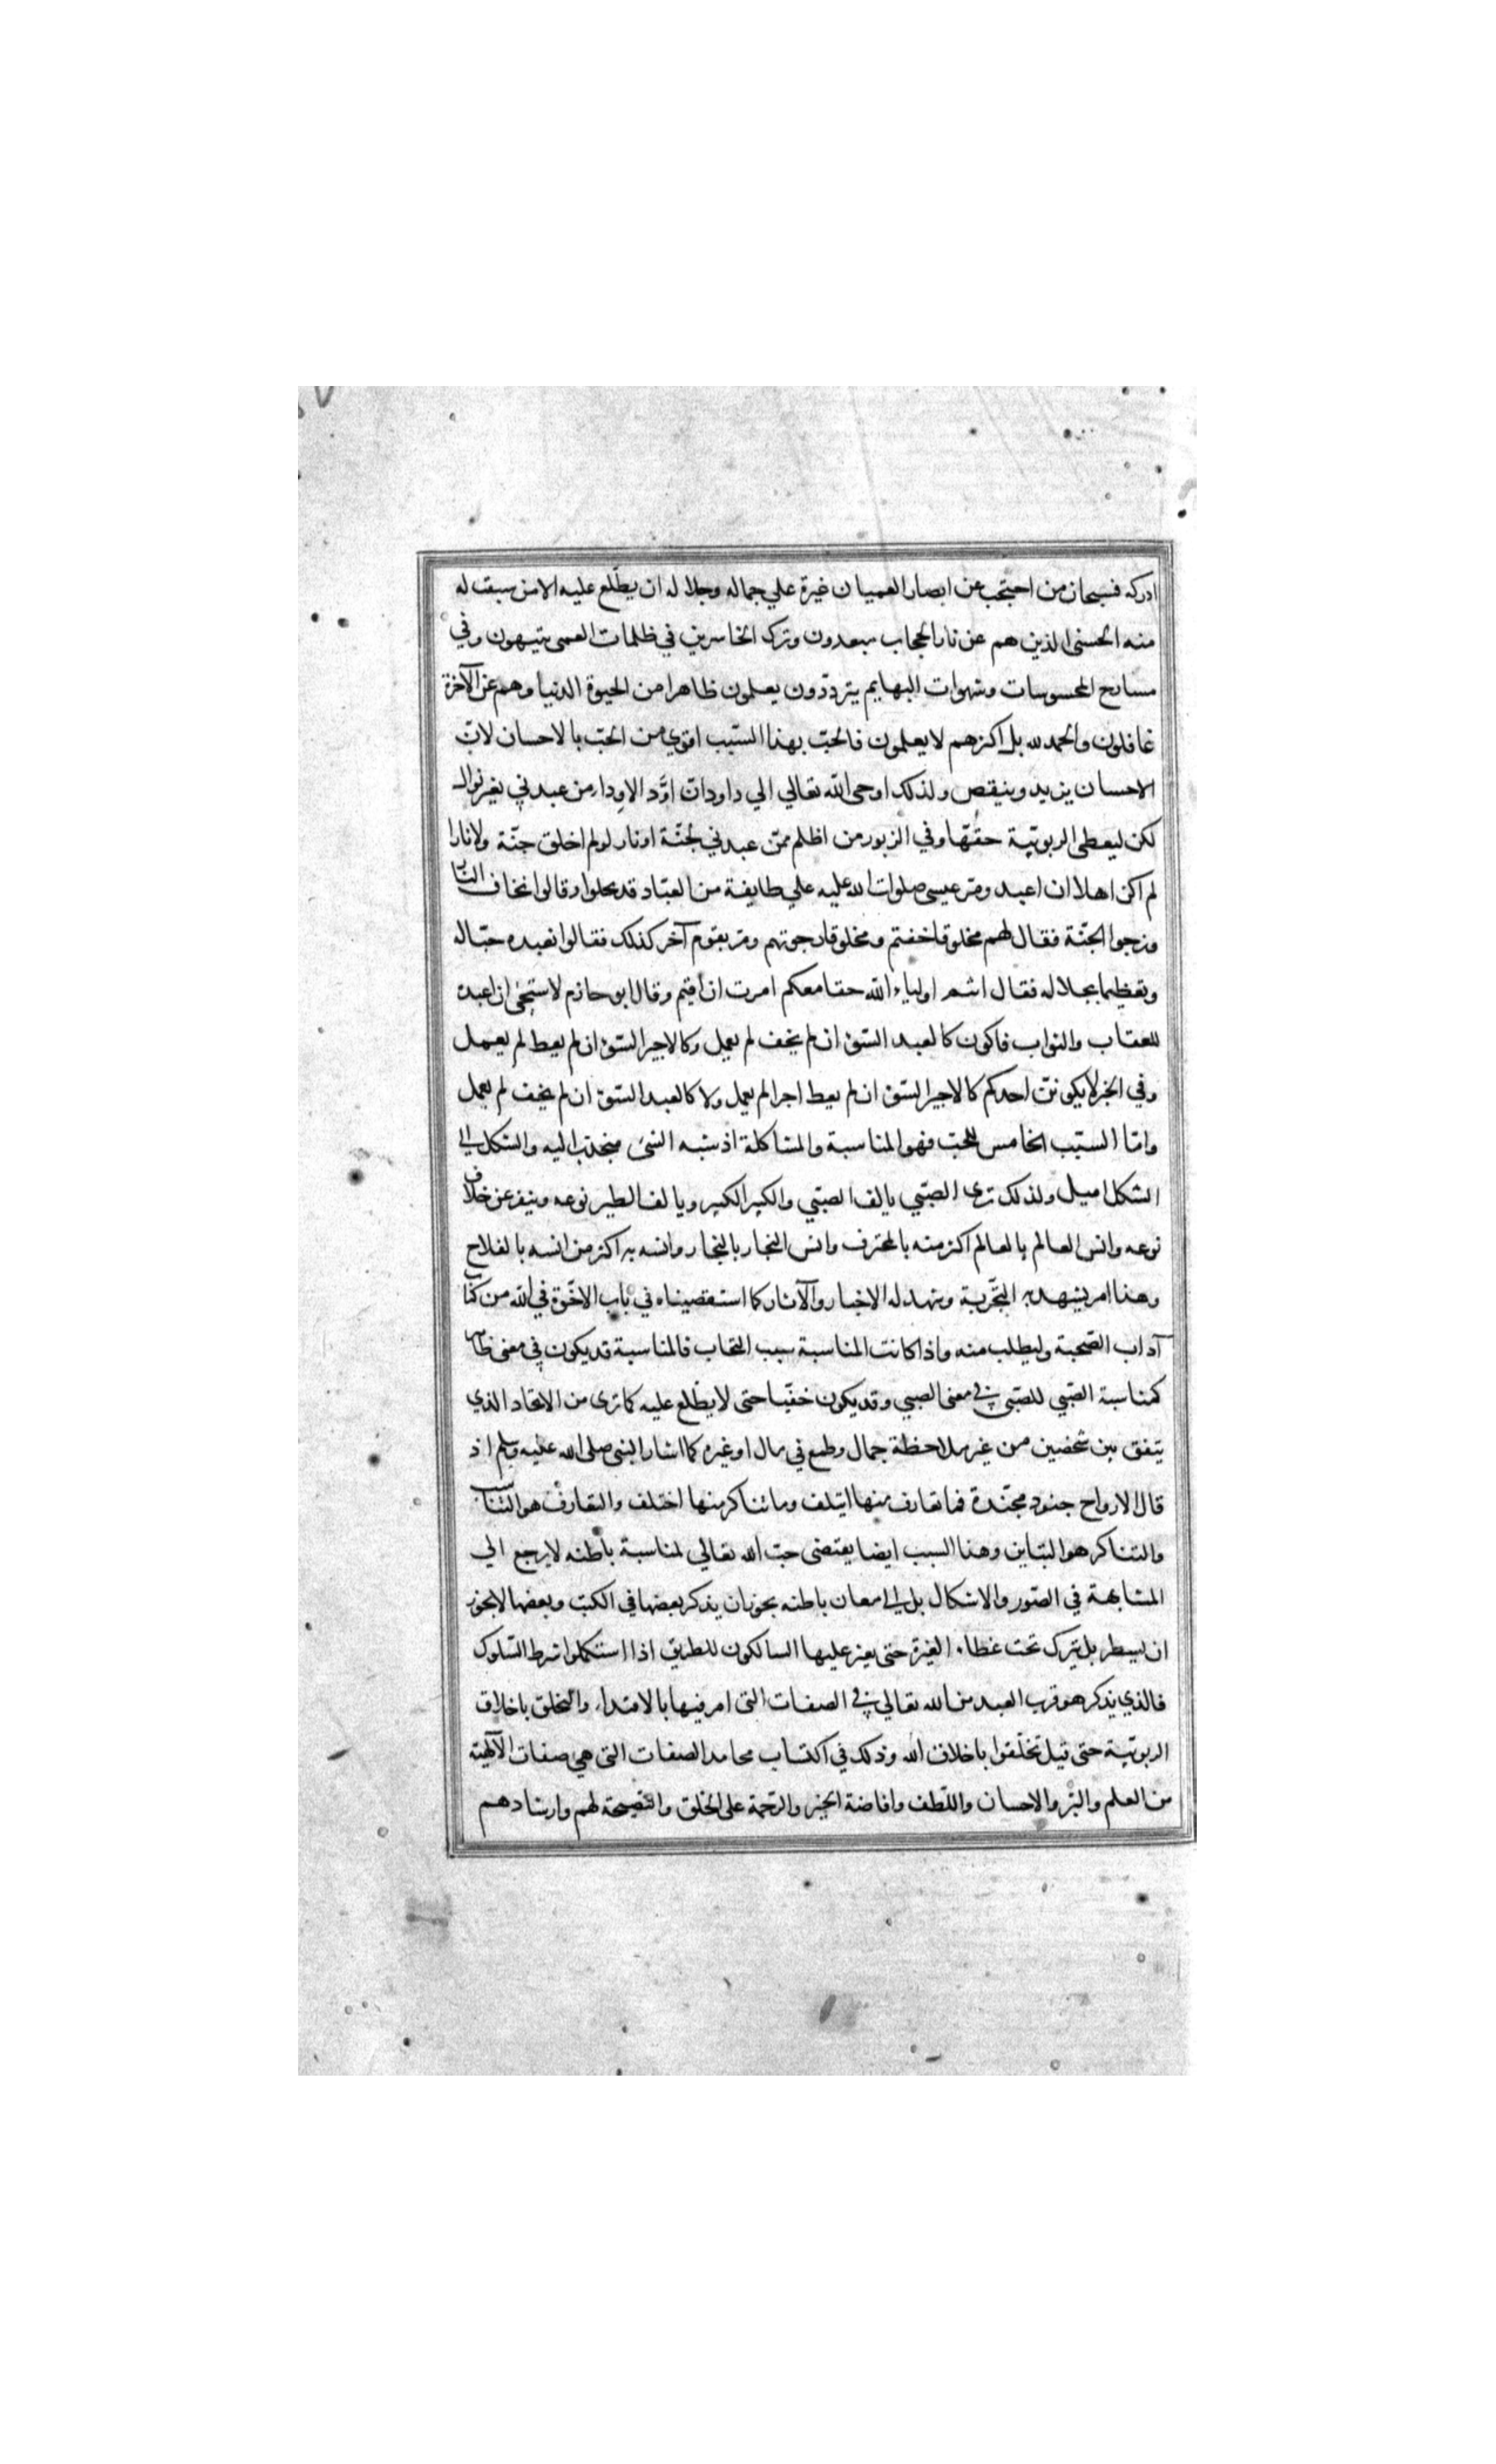 ادركه فسبحان من احتجب عن ابصار العميان غيرة علي جماله وجلاله ان يطّلع عليه الا من سبقت له
منه الحسنى الذين هم عن نار الحجاب مبعدون وترك الخاسرين في ظلمات العمى يتيهون وفي
مسارح المحسوسات وشهوات البهايم يتردّدون يعلمون ظاهرا من الحيوة الدنيا وهم عن الآخرة
غافلون والحمد لله بل اكثرهم لا يعلمون فالحبّ بهذا السّبب اقوي من الحبّ بالاحسان لانّ
الاحسان يزيد وينقص ولذلك اوحى الله تعالي الي داود انّ اودّ الاودا من عبدني بغير نوال
لكن ليعطى الربوبيّة حقّها وفي الزبور من اظلم ممّن عبدني لجنّة او نار لو لم اخلق جنّة ولا نارا
لم اكن اهلا ان اعبد ومرّ عيسى صلوات الله عليه علي طايفة من العبّاد قد نحلوا وقالوا نخاف النّار
ونرجوا الجنّة فقال لهم مخلوقا خفتم ومخلوقا رجوتم ومرّ بقوم آخر كذلك فقالوا نعبده حبّا له
وتعظيما بجلاله فقال انتم اولياء الله حقا معكم امرت ان اقيم وقال ابو حازم لاستحيى ان اعبده
للعقاب والثواب فاكون كالعبد السّوء ان لم يخف لم يعمل وكالاجير السّوء ان لم يعط لم يعمل
وفي الخبر لا يكوننّ احدكم كالاجير السّوء ان لم يعط اجرا لم يعمل ولا كالعبد السّوء ان لم يخف لم يعمل
وامّا السّبب الخامس للحبّ فهو المناسبة والمشاكلة اذ شبه الشئ منجذب اليه والشكل الي
الشكل اميل ولذلك ترى الصّبّي يالف الصّبّي والكبير الكبير ويالف الطير نوعه وينفر عن خلاف
نوعه وانس العالم بالعالم اكثر منه بالمحترف وانس النجار بالنجار وانسه به اكثر من انسه بالفلاح
وهذا امر يشهد به التجربة وتشهد له الاخبار والآثار كما استقصيناه في باب الاخّوة في الله من كتاب
آداب الصّحبة وليطلب منه واذا كانت المناسبة سبب التحاب فالمناسبة قد يكون في معنى ظاهر
كمناسبة الصّبي للصّبي في معنى الصبي وقد يكون خفيّا حتى لا يطّلع عليه كما ترى من الاتحاد الذي
يتفق بين شخصين من غير ملاحظة جمال وطمع في مال او غيره كما اشار النبي صلى الله عليه وسلم اذ
قال الارواح جنود مجنّدة فما تعارف منها ايتلف وما تناكر منها اختلف والتعارف هو التناسب
والتناكر هو التباين وهذا السبب ايضا يقتضى حبّ الله تعالي لمناسبة باطنه لا يرجع الي
المشابهة في الصّور والاشكال بل الي معان باطنه يجوز ان يذكر بعضها في الكتب وبعضها لا يجوز
ان يسطر بل يترك تحت غطاء الغيرة حتى يعثر عليها السالكون للطريق اذا استكملوا شرط السّلوك
فالذي يذكر هو قرب العبد من الله تعالي في الصفات التى امر فيها بالاقتداء والتخلق باخلاق
الربوبيّة حتى قيل تخلّقوا باخلاق الله وذلك في اكتساب محامد الصفات التى هي صفات الآلهيّة
من العلم والبرّ والاحسان واللّطف وافاضة الخير والرّحمة على الخلق والنّصيحة لهم وارشادهم